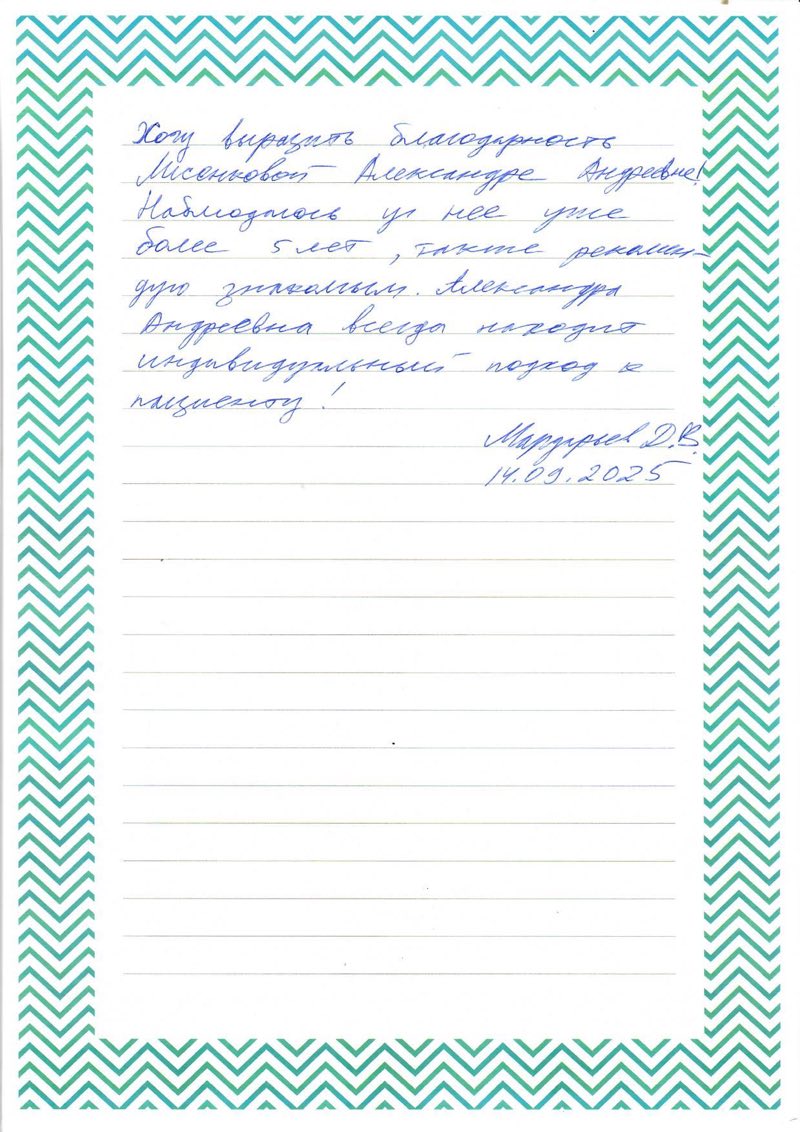 Хочу выразить благодарность
Александре Андреевне!
Наблюдаюсь у нее уже
более 5 лет, также рекомен-
дую знакомым. Александра
Андреевна всегда находит
индивидуальный подход к
пациенту!
Мардарьев Д.В.
14.09.2025